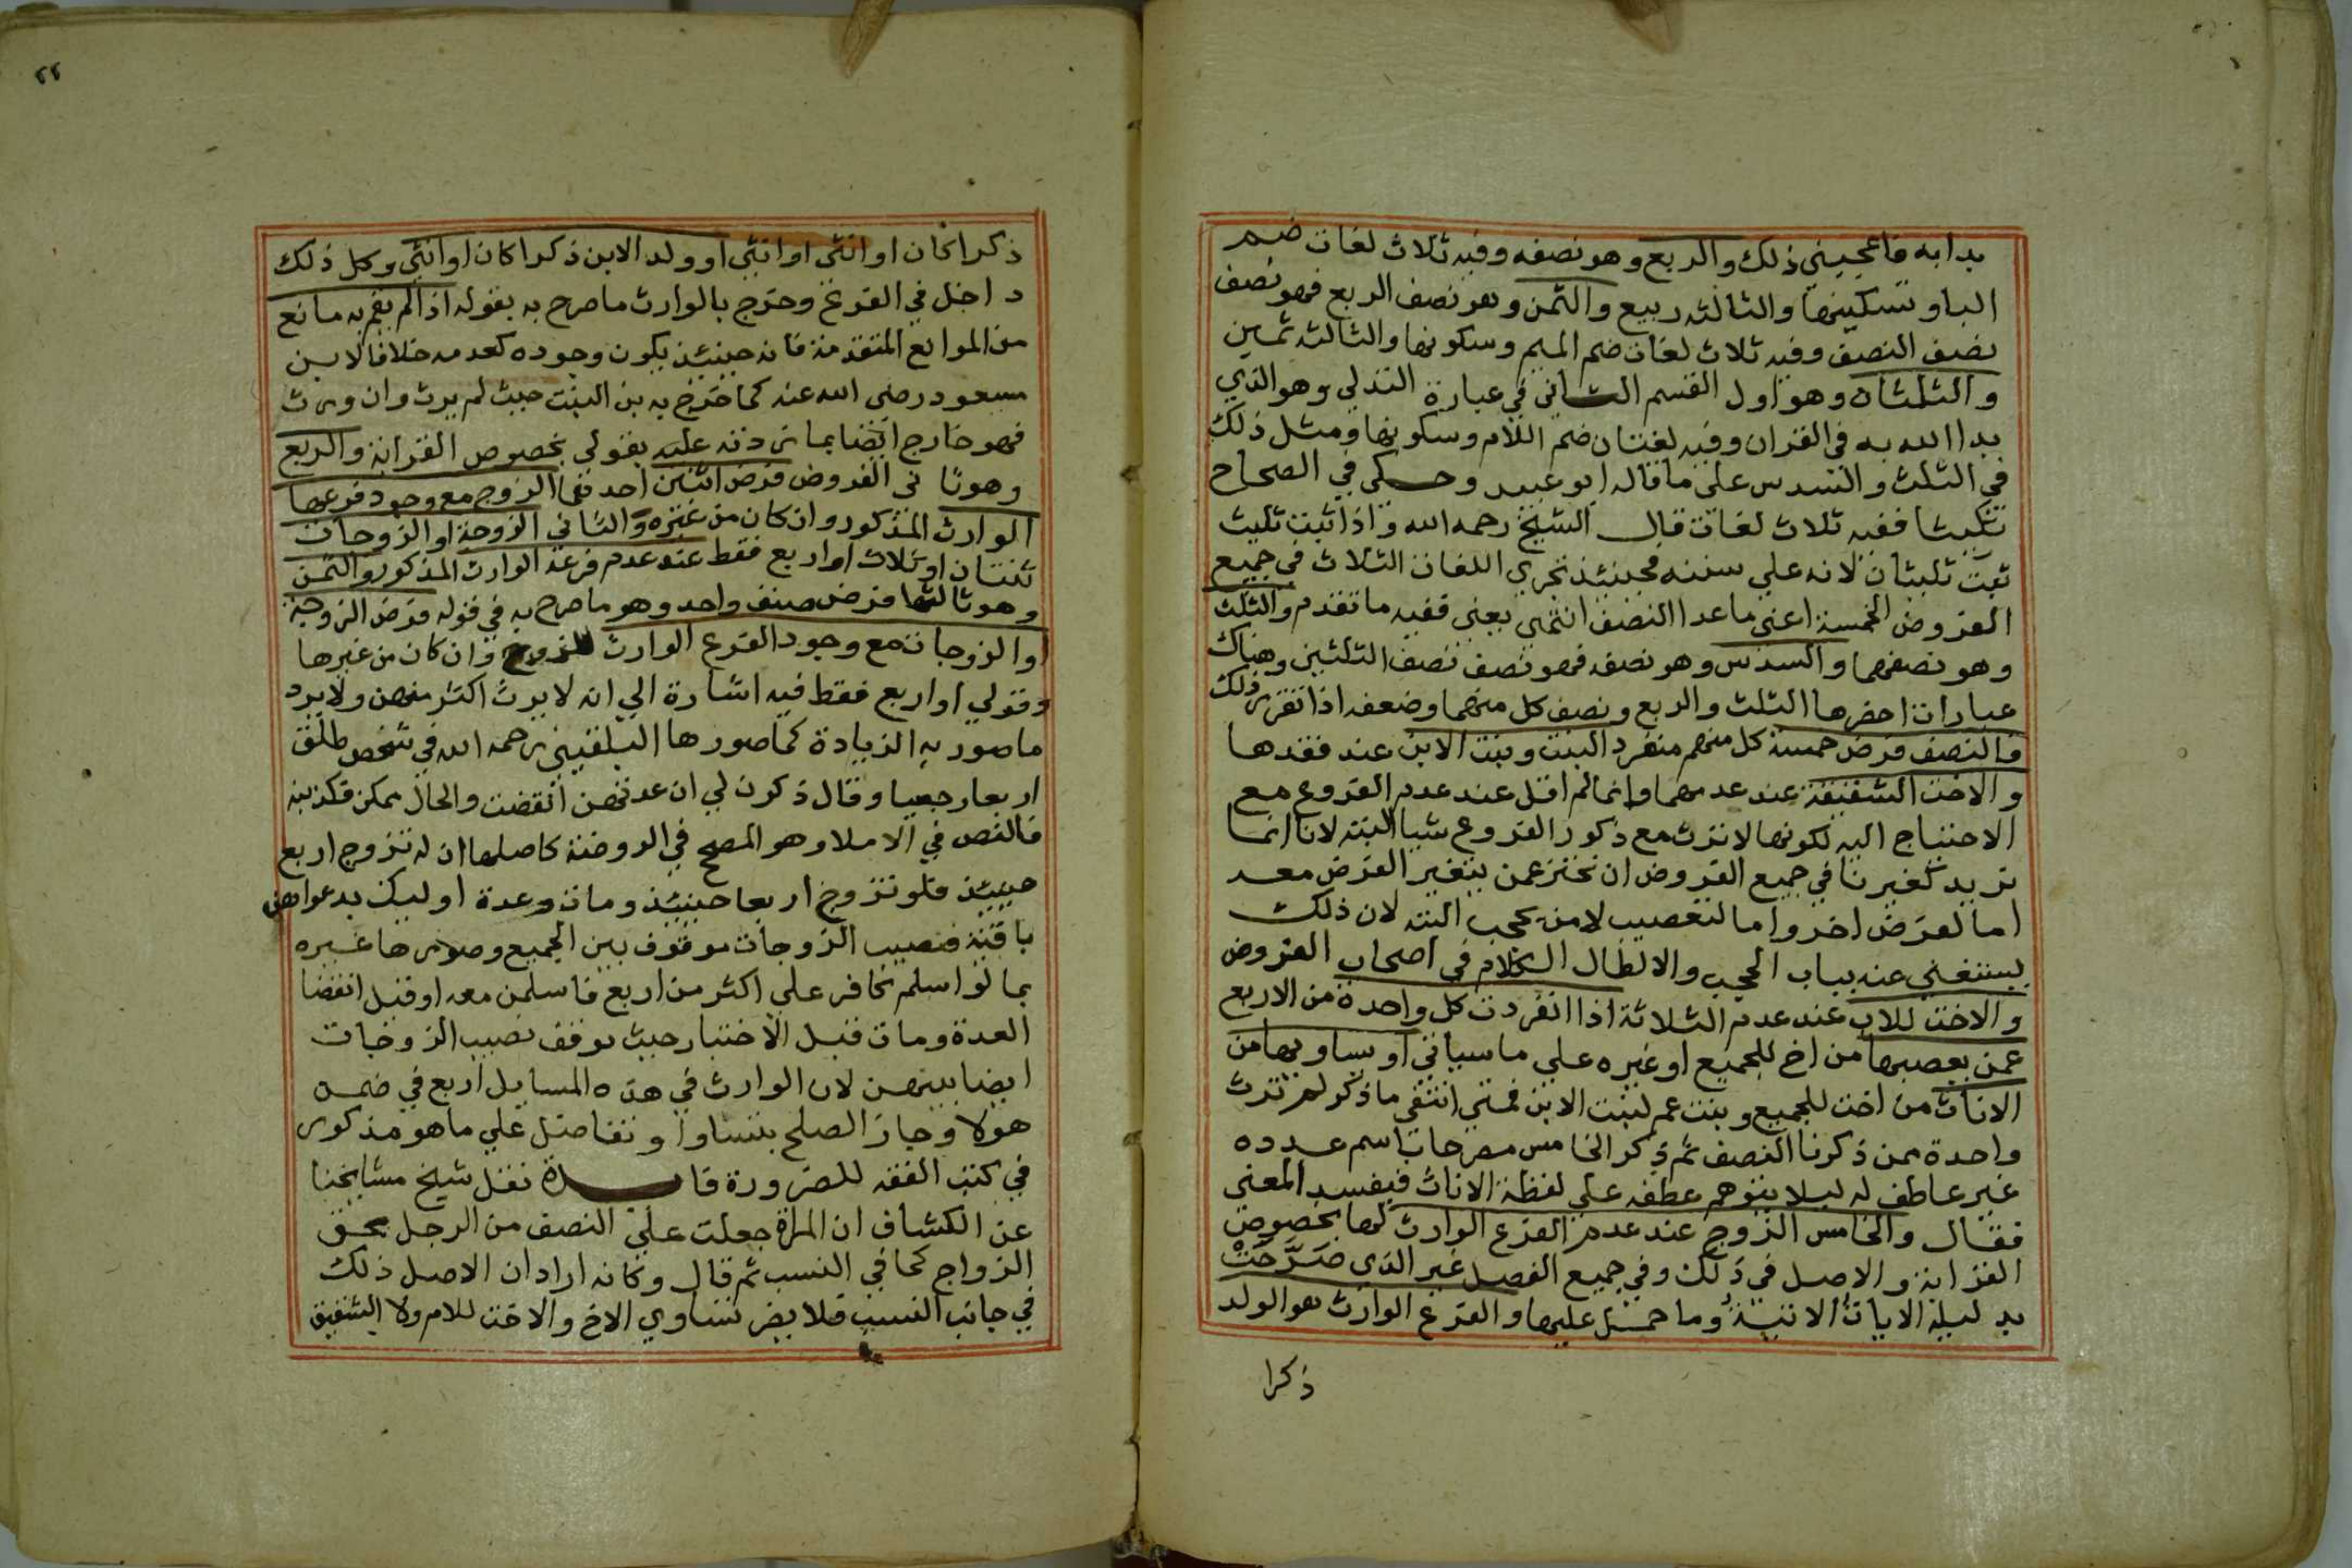 بدا به فاعجبني ذلك والربع وهو نصفه وفيه ثلاث لغات ضم
الباو تسكينها والثالثه ربيع والثمن وهو نصف الربع فهو نصف
نصف النصف وفيه ثلاث لغات ضم الميم وسكونها والثالثه ثمين
والثلثان وهو اول القسم الثاني في عبارة التدلي وهو الذي
بدا الله به في القران وفيه لغتان ضم اللام وسكونها ومثل ذلك
في الثلث والسدس على ما قاله ابو عبيد وحكي في الصحاح
تثليثا ففيه ثلاث لغات قال الشيخ رحمه الله واذا ثبت ثليث
ثبت ثليثان لانه علي سننه فحينئذ تجري اللغات الثلاث في جميع
الفروض الخمسة اعني ما عدا النصف انتهي يعني ففيه ما تقدم والثلث
وهو نصفهما والسدس وهو نصفه فهو نصف نصف الثلثين وهناك
عبارات احضرها الثلث والربع ونصف كل منهما وضعفه اذا تقرر ذلك
فالنصف فرض خمسة كل منهم منفرد البنت وبنت الابن عند فقدها
والاخت الشقيقة عند عدمهما وانما لم اقل عند عدم الفروع مع
الاحتياج اليه لكونها لا ترث مع ذكور الفروع شيا البته لانا انما
نريد كغيرنا في جميع الفروض ان نحترز عمن يتغير الفرض معه
اما لفرض اخر واما لتعصيب لا من يحجب البته لان ذلك
يستغني عنه بباب الحجب والا لطال الكلام في اصحاب الفروض
والاخت للاب عند عدم الثلاثة اذا انفردت كل واحدة من الاربع
عمن يعصبها من اخ للجميع او غيره علي ما سياتي او يساويها من
الاناث من اخت للجميع وبنت عم لبنت الابن فمتي انتفي ما ذكر لم ترث
واحدة ممن ذكرنا النصف ثم ذكر الخامس مصرحا باسم عدده
غير عاطف له ليلا يتوهم عطفه علي لفظة الاناث فيفسد المعني
فقال والخامس الزوج عند عدم الفرع الوارث لها بخصوص
القرابة والاصل في ذلك وفي جميع الفصل غير الذي صَرَّحَتْ
بدليله الايات الاتية وما حمل عليها والفرع الوارث هو الولد
ذكرا
٢٢
ذكرا كان او انثي او انثي او ولد الابن ذكرا كان او انثي وكل ذلك
داخل في الفرع وخرج بالوارث ما صرح به بقوله اذا لم يقم به مانع
من الموانع المتقدمة فانه حينئذ يكون وجوده كعدمه خلافا لابن
مسعود رضي الله عنه كما خرج به بن البنت حيث لم يرث وان ورث
فهو خارج ايضا بما زدته عليه بقولي بخصوص القرابة والربع
وهو ثاني الفروض فرض اثنين احدهما الزوج مع وجود فرعها
الوارث المذكور وان كان من غيره والثاني الزوجة او الزوجات
ثنتان او ثلاث او اربع فقط عند عدم فرعه الوارث المذكور والثمن
وهو ثالثها فرض صنف واحد وهو ما صرح به في قوله فرض الزوجة
او الزوجات مع وجود الفرع الوارث للزوج وان كان من غيرها
وقولي او اربع فقط فيه اشارة الي انه لا يرث اكثر منهن ولا يرد
ما صور به الزيادة كما صورها البلقيني رحمه الله في شخص طلق
اربعا رجعيا وقال ذكرن لي ان عدتهن انقضت والحال يمكن فكذبنه
فالنص في الاملا وهو المصحح في الروضة كاصلها ان له تزوج اربع
حينئذ فلو تزوج اربعا حينئذ ومات وعدة اوليك بدعواهن
باقية فنصيب الزوجات موقوف بين الجميع وصورها غيره
بما لو اسلم كافر علي اكثر من اربع فاسلمن معه او قبل انقضا
العدة ومات قبل الاختيار حيث يوقف نصيب الزوجات
ايضا بينهن لان الوارث في هذه المسايل اربع في ضمن
هولا وجاز الصلح بتساو او تفاضل علي ما هو مذكور
في كتب الفقه للضرورة فايدة نقل شيخ مشايخنا
عن الكشاف ان المراة جعلت علي النصف من الرجل بحق
الزواج كما في النسب ثم قال وكانه اراد ان الاصل ذلك
في جانب النسب فلا يضر تساوي الاخ والاخت للام ولا الشقيق